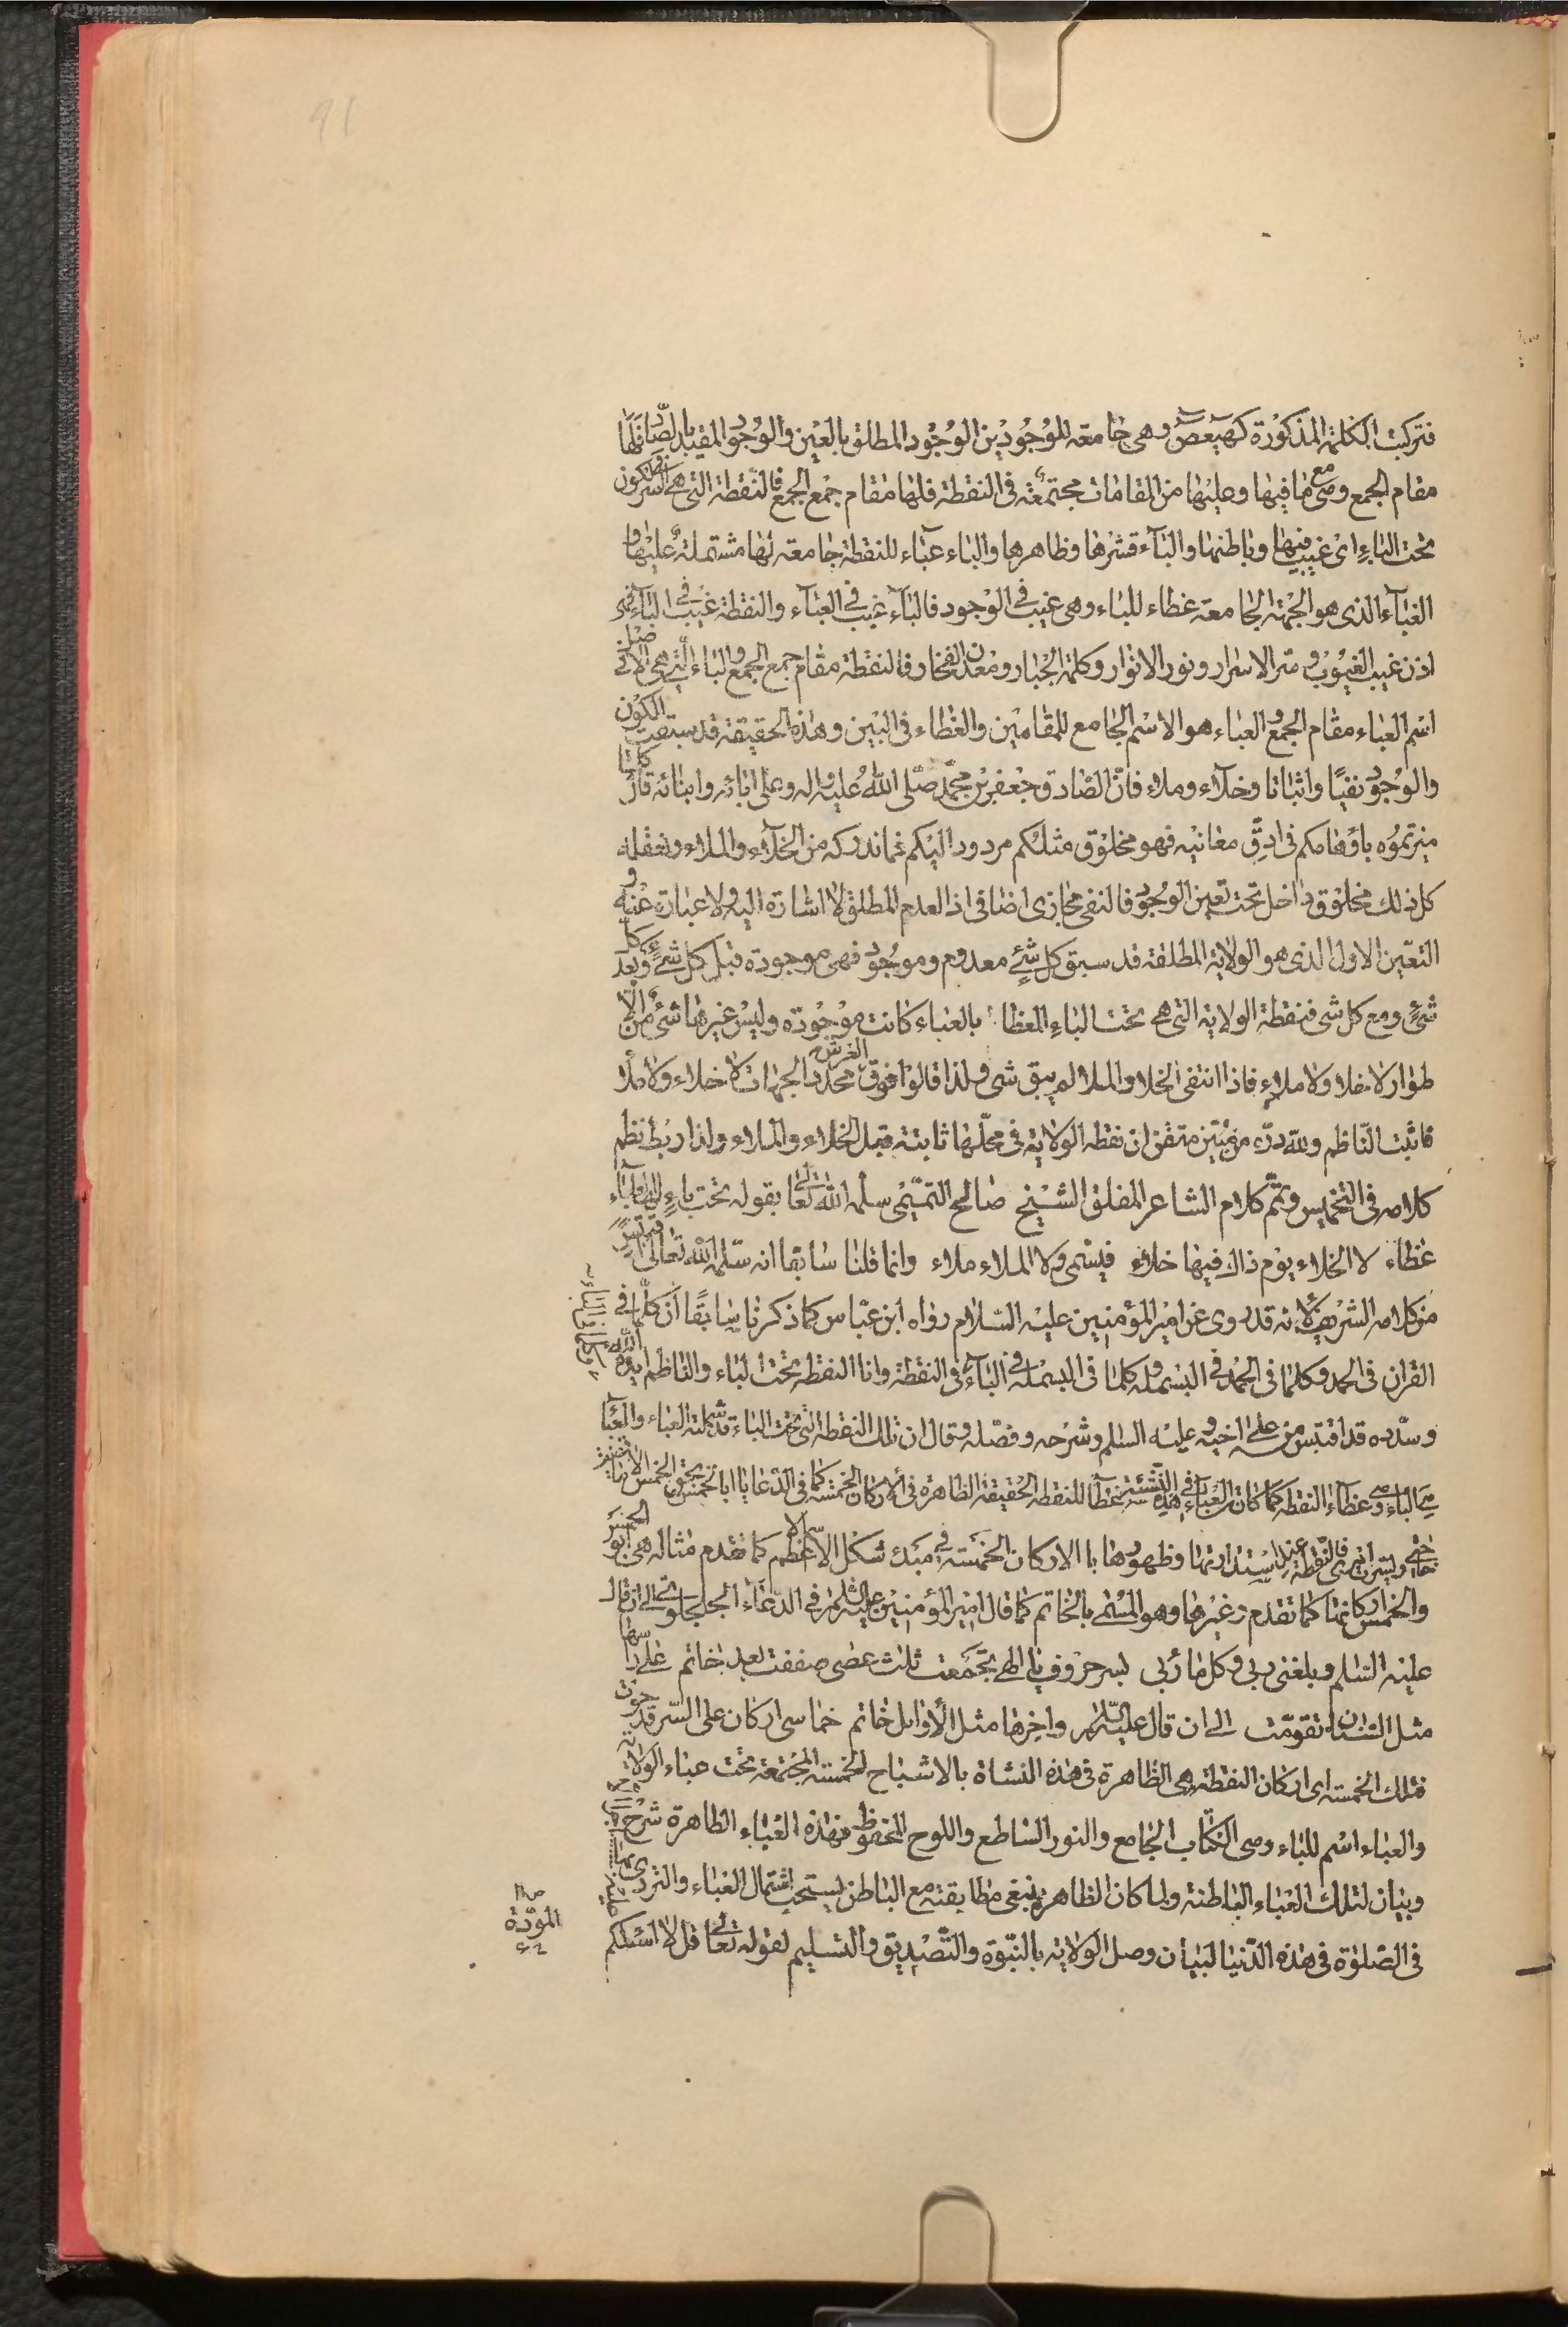 91
فتركبت الكلمة المذكورة كهيعص وهى جامعه للوجودين الوجود المطلق بالعين والوجود المقيد بالصاد فلها
مقام الجمع وهى مع ما فيها وعليها من المقامات مجتمعة فى النقطة فلها مقام جمع الجمع فالنقطة التى هى السر
تحت الباء اى غيب فيها وباطنها والباء قشرها وظاهرها والباء عباء للنقطة جامعة لها مشتملة عليها و
العباء الذى هو الجهة الجامعة غطاء للباء وهى غيب فى الوجود فالباء غيب فى العباء والنقطة غيب فى الباء فهى
اذن غيب الغيوب وسر الاسرار ونور الانوار وكلمة الجبار ومعدن الفخار فالنقطة مقام جمع الجمع والباء التى هى
اسم العباء مقام الجمع والعباء هو الاسم الجامع للمقامين والغطاء فى البين وهذه الحقيقة قد سبقت الكون
والوجود نفيًا واثباتا وخلاء وملاء فان الصادق جعفر بن محمد صلى الله عليه واله وعلى ابائه وابنائه قال كلما
ميزتموه باوهامكم فى ادق معانيه فهو مخلوق مثلكم مردود اليكم فما ندركه من الخلاء والملاء ونعقله
كل ذلك مخلوق داخل تحت تعين الوجود فالنفى مجازى اضافى اذ العدم المطلق لا اشارة اليه ولا عبارة عنه و
التعين الاول الذى هو الولاية المطلقة قد سبق كل شئ معدوم وموجود فهى موجودة قبل كل شئ وبعد كل
شئ ومع كل شى فنقطة الولاية التى هى تحت الباء المغطا بالعباء كانت موجودة وليس غيرها شئ من
طوار لا خلاء ولا ملاء فاذا انتفى الخلا والملا لم يبق شى ولذا قالوا فوق العرش محدد الجهات لا خلاء ولا ملا
فاثبت الناظم ولله دره من متقن ان نقطه الولاية فى محلها ثابتة قبل الخلاء والملاء ولذا ربط نظم
كلامه فى التخميس وتمم كلام الشاعر المفلق الشيخ صالح التميمى سلمه الله تعالى بقوله تحت باء لها العباء
غطاء لا الخلاء يوم ذاك فيها خلاء فيسمى ولا الملاء ملاء وانما قلنا سابقا انه سلمه الله تعالى اقتبس
من كلامه الشريف لانه قد روى عن امير المؤمنين عليه السلام رواه ابن عباس كما ذكرنا سابقًا ان كلما فى
القران فى الحمد وكلما فى الحمد فى البسملة وكلما فى البسملة فى الباء فى النقطة وانا النقطه تحت الباء والناظم ايده الله
وسدده قد اقتبس من على اخيه وعليه السلم وشرحه وفصله وقال ان تلك النقطة التى تحت الباء قد شملته العباء والعباء
هى الباء وهى غطاء النقطه كما كان العباء فى هذه النشئة غطاء للنقطه الحقيقة الظاهرة فى الاركان الخمسة كما فى الدعا
استدارتها وظهورها با الاركان الخمسة فى مبدء شكل الاسم الاعظم كما تقدم مثاله هى
والخمس اركانها كما تقدم وغيرها وهو المسمى بالخاتم كما قال امير المؤمنين عليه السلم فى الدعاء الجلجلوتى الى ان قال
عليه السلم وبلغنى ربى وكل ما ربى بسر حروف يا الهى تجمعت ثلث عصى صففت بعد خاتم على راسها
مثل السنان تقومت الى ان قال عليه السلم واخرها مثل الاوايل خاتم خماسى اركان على السر قد حوت
فتلك الخمسه اى اركان النقطة هى الظاهرة فى هذه النشاة بالاشباح الخمسة المجتمعة تحت عباء الولاية
والعباء اسم للباء وهى الكتاب الجامع والنور الساطع واللوح المحفوظ فهذه العباء الظاهرة شرح
وبيان لتلك العباء الباطنة ولما كان الظاهر ينبغى مطابقته مع الباطن يستحب اشتمال العباء والتردى بها
فى الصلوة فى هذه الدنيا لبيان وصل الولاية بالنبوة والتصديق والتسليم لقوله تعالى قل لا اسئلكم
المودّة